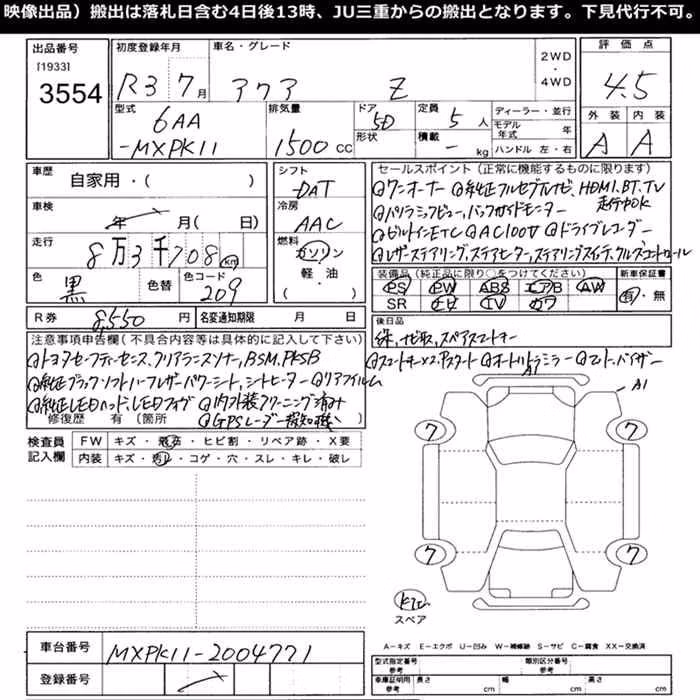 映像出品）搬出は落札日含む4日後13時、JU三重からの搬出となります。下見代行不可。
出品番号
[1933]
3554
初度登録年月
R3 7月
車名・グレード
アクア Z
2WD
・
4WD
評価点
4.5
外装 内装
A A
型式
6AA
-MXPK11
排気量
1500 CC
ドア
5D
形状
定員
5人
積載
- kg
ディーラー・並行
モデル年式 年
ハンドル 左・右
車歴
自家用・（ ）
車検
年 月（ 日）
走行
8万3千708 km
色
黒
色替
色コード
209
シフト
DAT
冷房
AAC
燃料
ガソリン
軽・油
（ ）
セールスポイント（正常に機能するものに限ります）
◎ワンオーナー ◎純正フルセグナビ、HDMI、BT、TV
走行中OK
◎パノラミックビュー、バックガイドモニター
◎ビルトインETC ◎AC100V ◎ドライブレコーダー
◎レザーステアリング、ステアヒーター、ステアリングスイッチ、クルーズコントロール
装備品（純正品に限り○をつけてください） 新車保証書
PS PW ABS エアB AW
SR ナビ TV カワ
有・無
R券 8,550円
名変通知期限 月 日
後日品
保、ナビ取、スペアスマートキー
注意事項申告欄（不具合内容等は具体的に記入して下さい）
◎トヨタセーフティーセンス、クリアランスソナー、BSM、PKSB
◎スマートキー×2、Pスタート ◎オートリトラミラー ◎マット、バイザー
◎純正ブラックソフトハーフレザーパワーシート、シートヒーター ◎リアフィルム
◎純正LEDヘッド、LEDフォグ ◎内外装クリーニング済み
修復歴 有（箇所
◎GPSレーダー探知機
検査員記入欄
FW キズ・飛石・ヒビ割・リペア跡・X要
内装 キズ・汚れ・コゲ・穴・スレ・キレ・破レ
A1
A1
7 7
7 7
スペア
車台番号 MXPK11-2004771
登録番号
A－キズ E－エクボ U－凹み W－補修跡 S－サビ C－腐食 XX－交換済
型式指定番号 参考 類別区分番号 参考
車庫証明用 参考 長さ cm 幅 cm 高さ cm